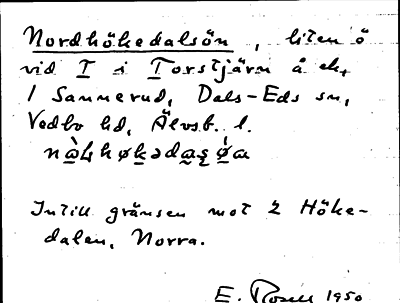 Nordhökedalsön, liten ö
vid T i Torstjärn å ek,
1 Sannerud, Dals-Eds sn,
Vedbo hd, Älvsb. l.
Intill gränsen mot 2 Höke-
dalen, Norra.
E. Rosell 1950